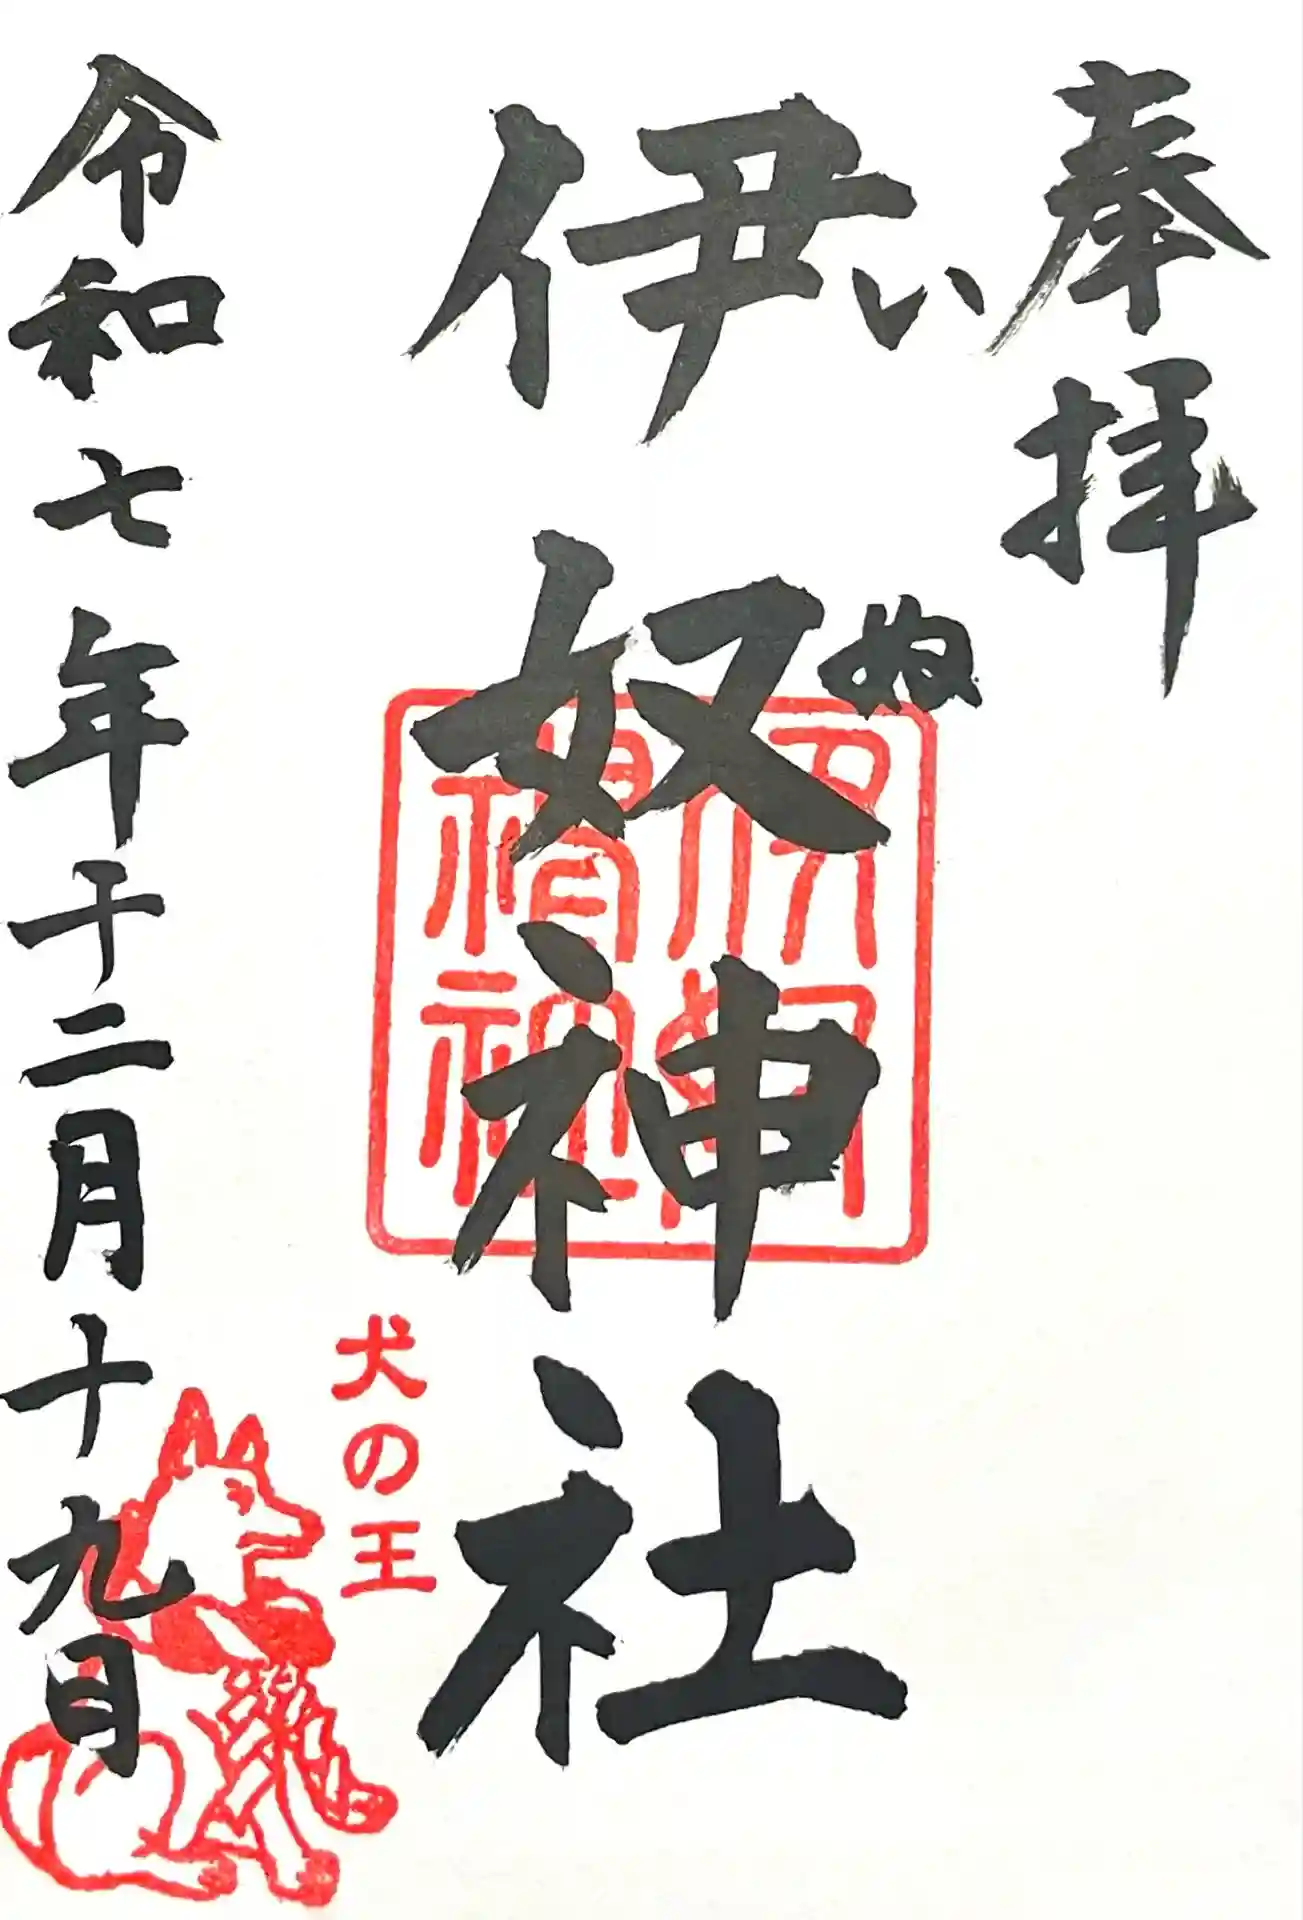 奉拝
い ぬ
伊奴神社
犬の王
令和七年十二月十九日